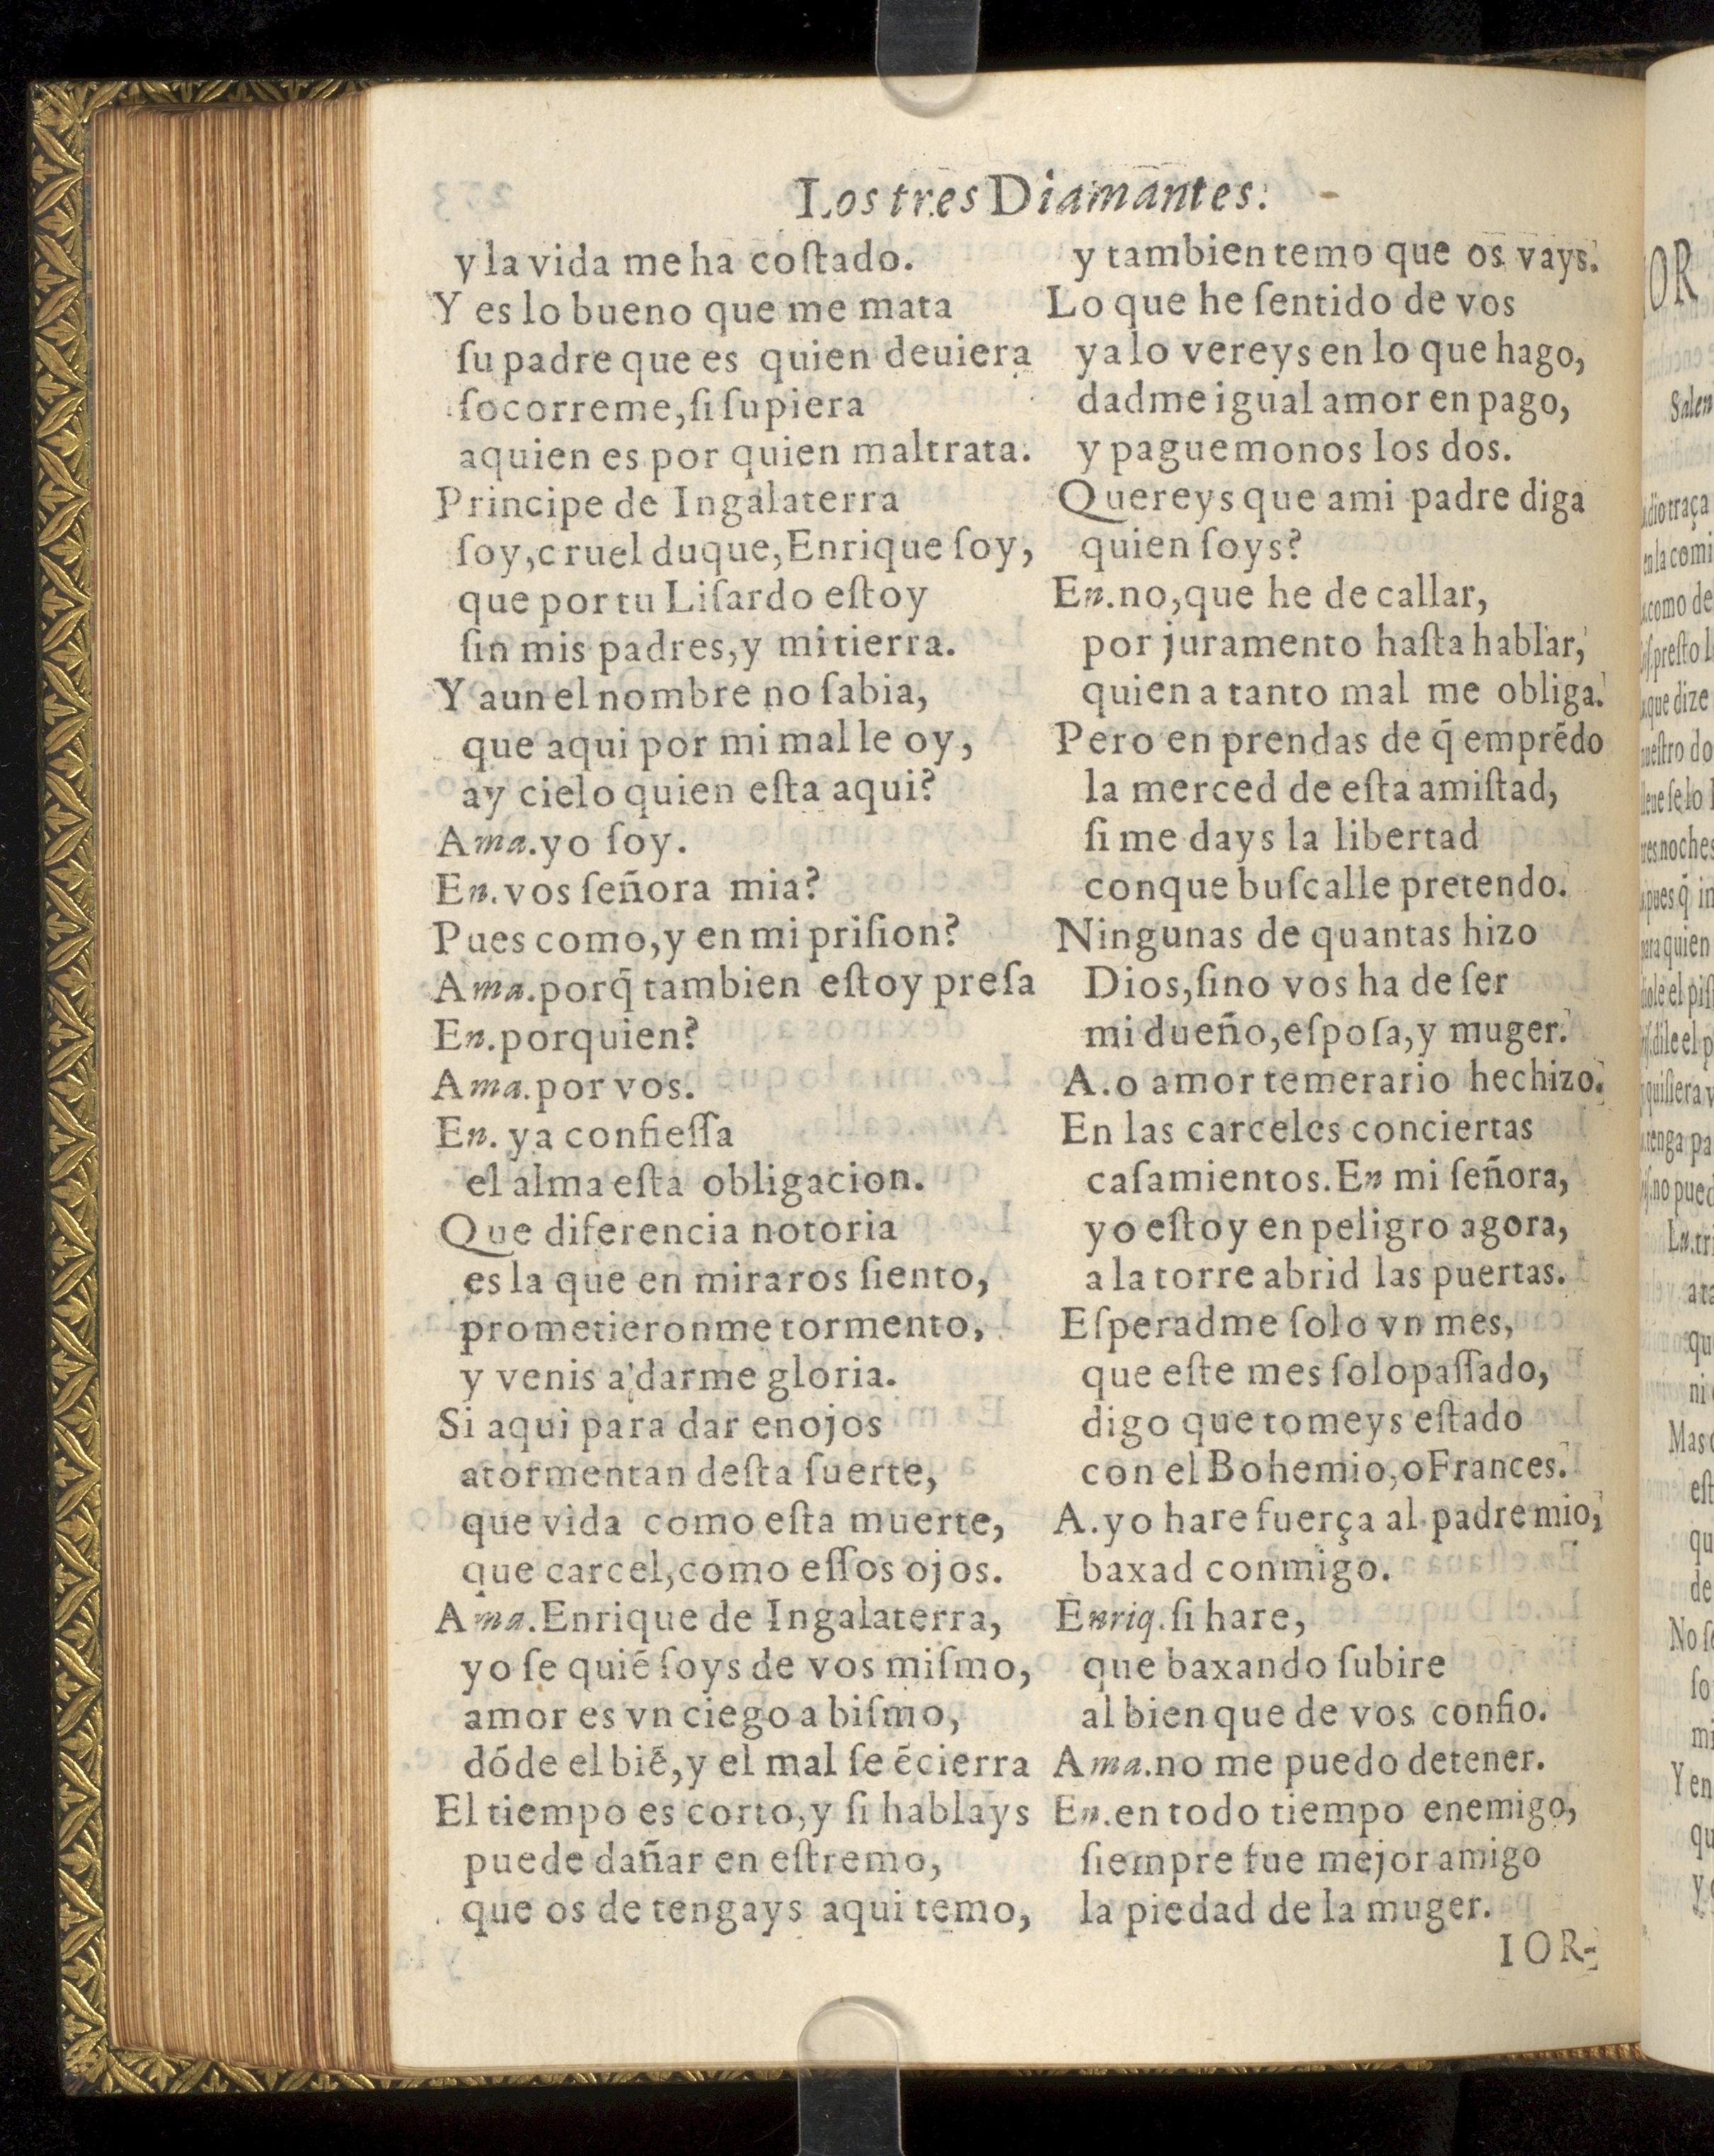 Los tres Diamantes.
y la vida me ha coſtado.
Y es lo bueno que me mata
ſu padre que es quien deuiera
ſocorreme, ſi ſupiera
aquien es por quien maltrata.
Principe de Ingalaterra
ſoy, cruel duque, Enrique ſoy,
que por tu Liſardo eſtoy
ſin mis padres, y mi tierra.
Y aun el nombre no ſabia,
que aqui por mi mal le oy,
ay cielo quien eſta aqui?
Ama. yo ſoy.
En. vos ſeñora mia?
Pues como, y en mi priſion?
Ama. porq̃ tambien eſtoy preſa
En. porquien?
Ama. por vos.
En. ya confieſſa
el alma eſta obligacion.
Que diferencia notoria
es la que en miraros ſiento,
prometieronme tormento,
y venis a darme gloria.
Si aqui para dar enojos
atormentan deſta ſuerte,
que vida como eſta muerte,
que carcel, como eſſos ojos.
Ama. Enrique de Ingalaterra,
yo ſe quiẽ ſoys de vos miſmo,
amor es vn ciego abiſmo,
dóde el bié, y el mal ſe ẽcierra
El tiempo es corto, y ſi hablays
puede dañar en eſtremo,
que os de tengays aqui temo,
y tambien temo que os vays.
Lo que he ſentido de vos
ya lo vereys en lo que hago,
dadme igual amor en pago,
y paguemonos los dos.
Quereys que ami padre diga
quien ſoys?
En. no, que he de callar,
por juramento haſta hablar,
quien a tanto mal me obliga.
Pero en prendas de q̃ emprẽdo
la merced de eſta amiſtad,
ſi me days la libertad
conque buſcalle pretendo.
Ningunas de quantas hizo
Dios, ſino vos ha de ſer
mi dueño, eſpoſa, y muger.
A. o amor temerario hechizo.
En las carceles conciertas
caſamientos. En mi ſeñora,
yo eſtoy en peligro agora,
a la torre abrid las puertas.
Eſperadme ſolo vn mes,
que eſte mes ſolo paſſado,
digo que tomeys eſtado
con el Bohemio, o Frances.
A. yo hare fuerça al padre mio,
baxad conmigo.
Enriq. ſi hare,
que baxando ſubire
al bien que de vos confio.
Ama. no me puedo detener.
En. en todo tiempo enemigo,
ſiempre fue mejor amigo
la piedad de la muger.
IOR-
OR
Salen
dio traça
en la comi
como de
preſto l
que dize
ueſtro do
leue ſe lo
res noches
pues q̃ in
para quien
diole el piſ
dile el p
quiſiera v
tenga pa
no pued
En. tri
a ta
qu
ni
Mas
eſt
qu
de
No ſ
ſo
mi
Y en
qu
y